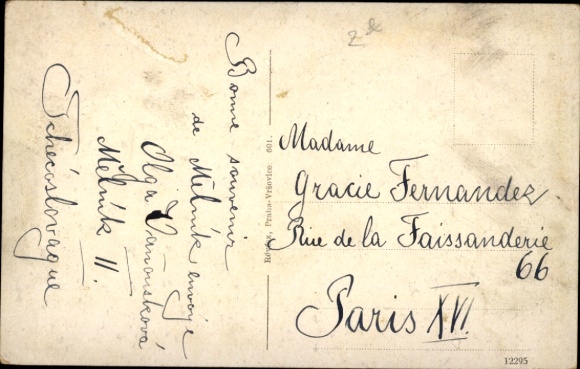 Bonne souvenir
de Mělník envoye
Olga Vaňousková
Mělník II.
Tchécoslovaque
Madame
Gracie Fernandez
Rue de la Faissanderie
66
Paris XVI.
Praha-Vršovice 601.
12295